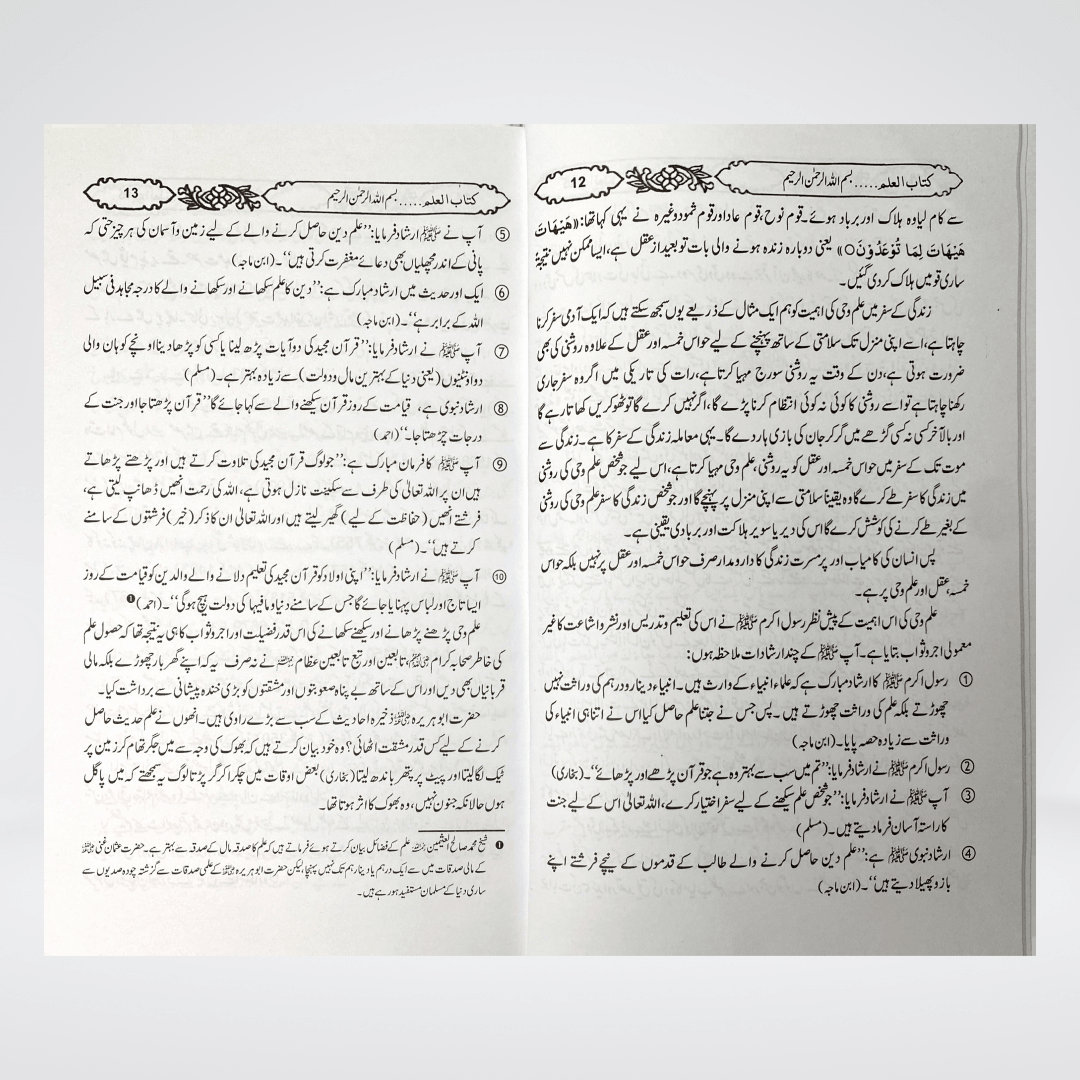 کتاب العلم..... بسم اللہ الرحمٰن الرحیم
12
سے کام لیا وہ ہلاک اور برباد ہوئے۔ قوم نوح، قوم عاد اور قوم ثمود وغیرہ نے یہی کہا تھا: «هَيْهَاتَ
هَيْهَاتَ لِمَا تُوْعَدُوْنَ○» یعنی دوبارہ زندہ ہونے والی بات تو بعید از عقل ہے، ایسا ممکن نہیں نتیجۃً
ساری قومیں ہلاک کر دی گئیں۔
زندگی کے سفر میں علم وحی کی اہمیت کو ہم ایک مثال کے ذریعے یوں سمجھ سکتے ہیں کہ ایک آدمی سفر کرنا
چاہتا ہے، اسے اپنی منزل تک سلامتی کے ساتھ پہنچنے کے لیے حواس خمسہ اور عقل کے علاوہ روشنی کی بھی
ضرورت ہوتی ہے، دن کے وقت یہ روشنی سورج مہیا کرتا ہے، رات کی تاریکی میں اگر وہ سفر جاری
رکھنا چاہتا ہے تو اسے روشنی کا کوئی نہ کوئی انتظام کرنا پڑے گا، اگر نہیں کرے گا تو ٹھوکریں کھاتا رہے گا
اور بالآخر کسی نہ کسی گڑھے میں گر کر جان کی بازی ہار دے گا۔ یہی معاملہ زندگی کے سفر کا ہے۔ زندگی سے
موت تک کے سفر میں حواس خمسہ اور عقل کو یہ روشنی، علم وحی مہیا کرتا ہے، اس لیے جو شخص علم وحی کی روشنی
میں زندگی کا سفر طے کرے گا وہ یقیناً سلامتی سے اپنی منزل پر پہنچے گا اور جو شخص زندگی کا سفر علم وحی کی روشنی
کے بغیر طے کرنے کی کوشش کرے گا اس کی دیر یا سویر ہلاکت اور بربادی یقینی ہے۔
پس انسان کی کامیاب اور پرمسرت زندگی کا دارومدار صرف حواس خمسہ اور عقل پر نہیں بلکہ حواس
خمسہ، عقل اور علم وحی پر ہے۔
علم وحی کی اس اہمیت کے پیش نظر رسول اکرم ﷺ نے اس کی تعلیم و تدریس اور نشر و اشاعت کا غیر
معمولی اجر و ثواب بتایا ہے۔ آپ ﷺ کے چند ارشادات ملاحظہ ہوں:
① رسول اکرم ﷺ کا ارشاد مبارک ہے کہ علماء انبیاء کے وارث ہیں۔ انبیاء دینار و درہم کی وراثت نہیں
چھوڑتے بلکہ علم کی وراثت چھوڑتے ہیں۔ پس جس نے جتنا علم حاصل کیا اس نے اتنا ہی انبیاء کی
وراثت سے زیادہ حصہ پایا۔ (ابن ماجہ)
② رسول اکرم ﷺ نے ارشاد فرمایا: ’’تم میں سب سے بہتر وہ ہے جو قرآن پڑھے اور پڑھائے‘‘۔ (بخاری)
③ آپ ﷺ نے ارشاد فرمایا: ’’جو شخص علم سیکھنے کے لیے سفر اختیار کرے، اللہ تعالیٰ اس کے لیے جنت
کا راستہ آسان فرما دیتے ہیں۔ (مسلم)
④ ارشاد نبوی ﷺ ہے: ’’علم دین حاصل کرنے والے طالب کے قدموں کے نیچے فرشتے اپنے
بازو پھیلا دیتے ہیں‘‘۔ (ابن ماجہ)
کتاب العلم..... بسم اللہ الرحمٰن الرحیم
13
⑤ آپ نے ﷺ ارشاد فرمایا: ’’علم دین حاصل کرنے والے کے لیے زمین و آسمان کی ہر چیز حتی کہ
پانی کے اندر مچھلیاں بھی دعائے مغفرت کرتی ہیں‘‘۔ (ابن ماجہ)
⑥ ایک اور حدیث میں ارشاد مبارک ہے: ’’دین کا علم سکھانے اور سکھانے والے کا درجہ مجاہد فی سبیل
اللہ کے برابر ہے‘‘۔ (ابن ماجہ)
⑦ آپ ﷺ نے ارشاد فرمایا: ’’قرآن مجید کی دو آیات پڑھ لینا یا کسی کو پڑھا دینا اونچے کوہان والی
دو اونٹنیوں (یعنی دنیا کے بہترین مال و دولت) سے زیادہ بہتر ہے۔ (مسلم)
⑧ ارشاد نبوی ہے، قیامت کے روز قرآن سیکھنے والے سے کہا جائے گا ’’قرآن پڑھتا جا اور جنت کے
درجات چڑھتا جا۔‘‘ (احمد)
⑨ آپ ﷺ کا فرمان مبارک ہے: ’’جو لوگ قرآن مجید کی تلاوت کرتے ہیں اور پڑھتے پڑھاتے
ہیں ان پر اللہ تعالیٰ کی طرف سے سکینت نازل ہوتی ہے، اللہ کی رحمت انھیں ڈھانپ لیتی ہے،
فرشتے انھیں (حفاظت کے لیے) گھیر لیتے ہیں اور اللہ تعالیٰ ان کا ذکر (خیر) فرشتوں کے سامنے
کرتے ہیں‘‘۔ (مسلم)
⑩ آپ ﷺ نے ارشاد فرمایا: ’’اپنی اولاد کو قرآن مجید کی تعلیم دلانے والے والدین کو قیامت کے روز
ایسا تاج اور لباس پہنایا جائے گا جس کے سامنے دنیا و مافیہا کی دولت ہیچ ہوگی‘‘۔ (احمد) ❶
علم وحی پڑھنے پڑھانے اور سیکھنے سکھانے کی اس قدر فضیلت اور اجر و ثواب کا ہی یہ نتیجہ تھا کہ حصول علم
کی خاطر صحابہ کرام ؓ، تابعین اور تبع تابعین عظام ؒ نے نہ صرف یہ کہ اپنے گھر بار چھوڑے بلکہ مالی
قربانیاں بھی دیں اور اس کے ساتھ بے پناہ صعوبتوں اور مشقتوں کو بڑی خندہ پیشانی سے برداشت کیا۔
حضرت ابو ہریرہ ؓ ذخیرہ احادیث کے سب سے بڑے راوی ہیں۔ انھوں نے علم حدیث حاصل
کرنے کے لیے کس قدر مشقت اٹھائی؟ وہ خود بیان کرتے ہیں کہ بھوک کی وجہ سے میں جگر تھام کر زمین پر
ٹیک لگا لیتا اور پیٹ پر پتھر باندھ لیتا (بخاری) بعض اوقات میں چکرا کر گر پڑتا لوگ یہ سمجھتے کہ میں پاگل
ہوں حالانکہ جنون نہیں، وہ بھوک کا اثر ہوتا تھا۔
❶ شیخ محمد صالح العثیمین ؒ علم کے فضائل بیان کرتے ہوئے فرماتے ہیں کہ علم کا صدقہ مال کے صدقہ سے بہتر ہے۔ حضرت عثمان غنی ؓ
کے مالی صدقات میں سے ایک درہم یا دینار ہم تک نہیں پہنچا، لیکن حضرت ابو ہریرہ ؓ کے علمی صدقات سے گزشتہ چودہ صدیوں سے
ساری دنیا کے مسلمان مستفید ہو رہے ہیں۔